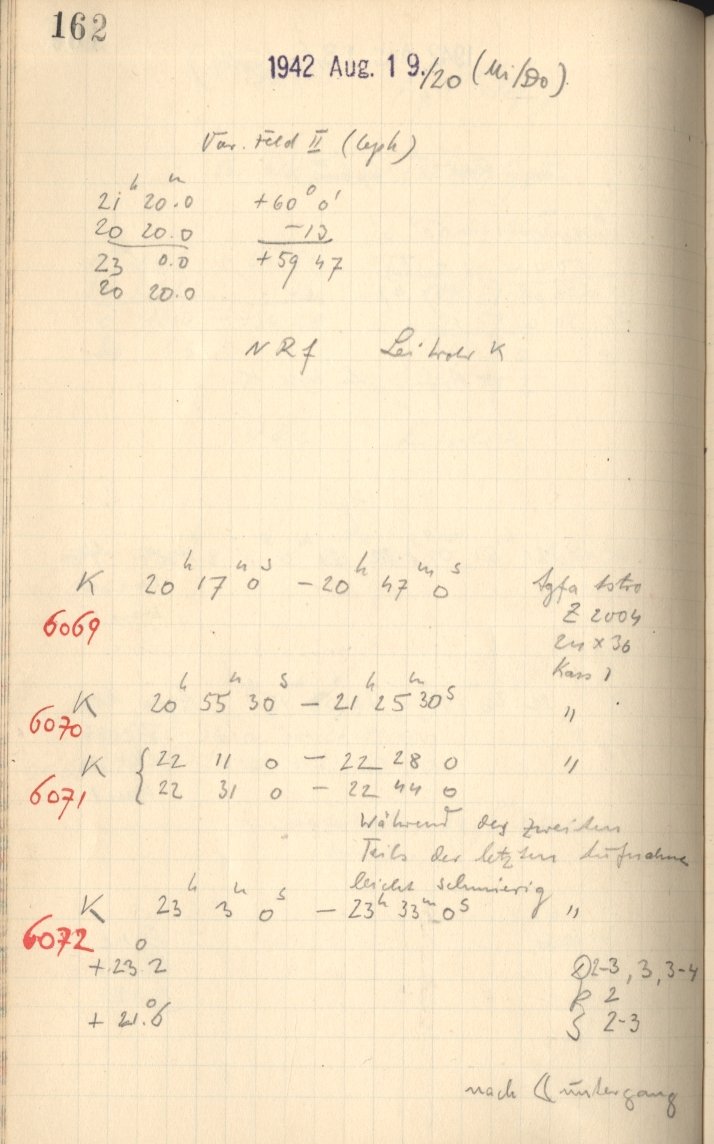 162
1942 Aug. 19./20 (Mi/Do).
Var. Feld II (Ceph)
21h 20m.0 +60° 0'
20 20.0 -13
23 0.0 +59 47
20 20.0
NRf Leitrohr K
K 20h 17m 0s - 20h 47m 0s Agfa Astro
6069 Z 2004
24 x 36
Kass 1
K 20h 55m 30s - 21h 25m 30s "
6070
K { 22 11 0 - 22 28 0 "
6071 22 31 0 - 22 44 0
Während des zweiten
Teils der letzten Aufnahme
leicht schmierig
K 23h 3m 0s - 23h 33m 0s "
6072
+23°2 D 2-3, 3, 3-4
R 2
+21.°6 S 2-3
nach ☾ untergang